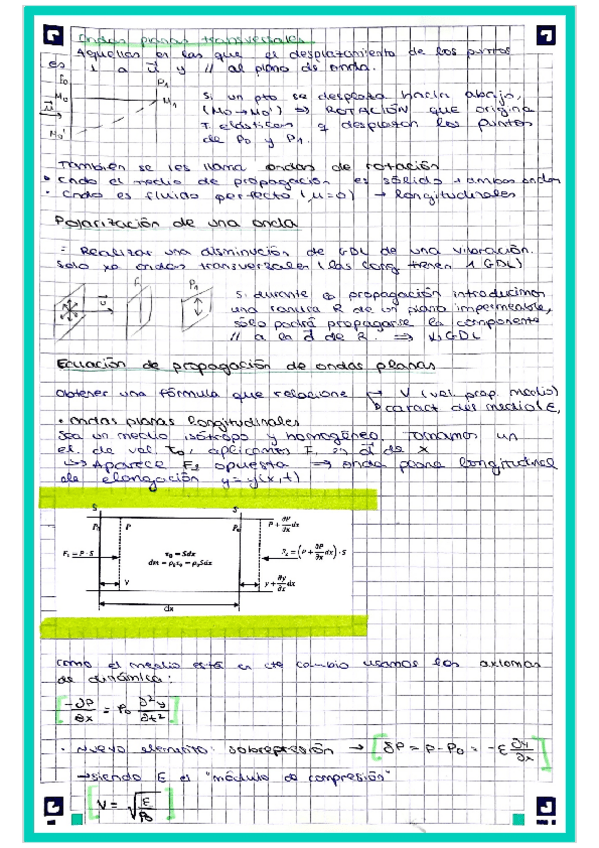 Ondas planas transversales
Aquellas en las que el desplazamiento de los puntos
es ⊥ a u⃗ y // al plano de onda.
P0 P1
M0 M1
M0'
Si un pto se desplaza hacia abajo,
(M0→M0') ⇒ ROTACIÓN que origina
T. elásticas q desplazan los puntos
de P0 y P1.
También se les llama ondas de rotación
• Cndo el medio de propagación es sólido → ambas ondas
• Cndo es fluido perfecto (μ=0) → longitudinales
Polarización de una onda
= Realizar una disminución de GDL de una vibración.
Solo xa ondas transversales (las long tienen 1 GDL)
P1
Si durante la propagación introducimos
una ranura R de un plano impermeable,
sólo podrá propagarse la componente
// a la d⃗ de R. ⇒ ↓GDL
Ecuación de propagación de ondas planas
Obtener una fórmula que relacione → V (vel. prop. medio)
caract del medio (E,
• Ondas planas longitudinales
Sea un medio isótropo y homogéneo. Tomamos un
el. de vol τ0, aplicamos F1 en d⃗ de x
↳ Aparece F2 opuesta ⇒ onda plana longitudinal
de elongación y=y(x,t)
S S
P0 P P0 P + ∂P/∂x dx
F1 = P · S
τ0 = Sdx
dm = ρ0τ0 = ρ0Sdx
F2 = (P + ∂P/∂x dx) · S
y y + ∂y/∂x dx
dx
Como el medio está en cte cambio usamos los axiomas
de dinámica:
[-∂P/∂x = ρ0 ∂²y/∂t²]
• Nuevo elemento: sobrepresión → [δP = P - P0 = -E ∂y/∂x]
→ siendo E el "módulo de compresión"
[V = √(E/ρ0)]